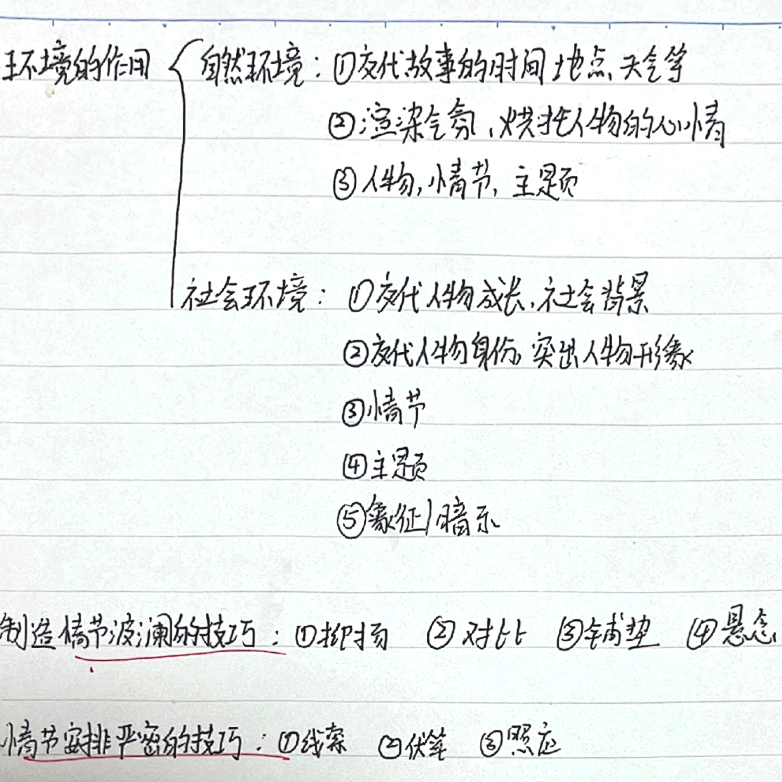 环境的作用 { 自然环境：①交代故事的时间、地点、天气等
②渲染气氛、烘托人物的心情
③人物、情节、主题
社会环境：①交代人物成长、社会背景
②交代人物身份，突出人物形象
③情节
④主题
⑤象征/暗示
制造情节波澜的技巧：①抑扬 ②对比 ③铺垫 ④悬念
情节安排严密的技巧：①线索 ②伏笔 ③照应